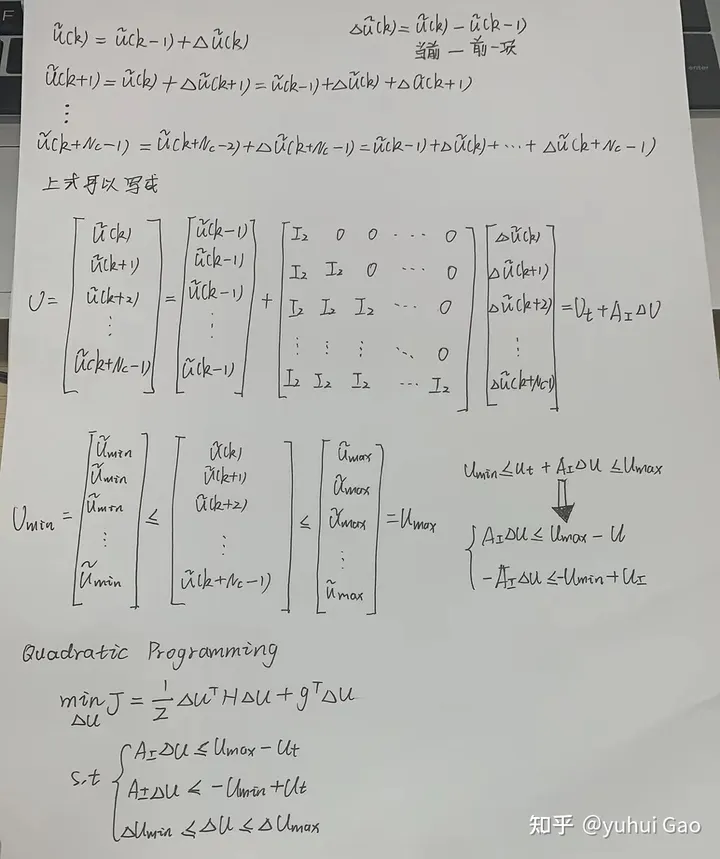 ũ(k) = ũ(k-1) + Δũ(k)    Δũ(k) = ũ(k) - ũ(k-1)
当前 - 前一项
ũ(k+1) = ũ(k) + Δũ(k+1) = ũ(k-1) + Δũ(k) + Δũ(k+1)
⋮
ũ(k+Nc-1) = ũ(k+Nc-2) + Δũ(k+Nc-1) = ũ(k-1) + Δũ(k) + ⋯ + Δũ(k+Nc-1)
上式可以写成
U = [ũ(k) ũ(k+1) ũ(k+2) ⋮ ũ(k+Nc-1)] = [ũ(k-1) ũ(k-1) ũ(k-1) ⋮ ũ(k-1)] + [I₂ 0 0 ⋯ 0
I₂ I₂ 0 ⋯ 0
I₂ I₂ I₂ ⋯ 0
⋮ ⋮ ⋮ ⋱ 0
I₂ I₂ I₂ ⋯ I₂] [Δũ(k) Δũ(k+1) Δũ(k+2) ⋮ Δũ(k+Nc-1)] = Ut + A_I ΔU
Umin = [ũmin ũmin ũmin ⋮ ũmin] ≤ [ũ(k) ũ(k+1) ũ(k+2) ⋮ ũ(k+Nc-1)] ≤ [ũmax ũmax ũmax ⋮ ũmax] = Umax
Umin ≤ Ut + A_I ΔU ≤ Umax
⇓
{ A_I ΔU ≤ Umax - U
-A_I ΔU ≤ -Umin + U_I
Quadratic Programming
min J = 1/2 ΔUᵀHΔU + gᵀΔU
ΔU
s.t { A_I ΔU ≤ Umax - Ut
A_I ΔU ≤ -Umin + Ut
ΔUmin ≤ ΔU ≤ ΔUmax
知乎 @yuhui Gao